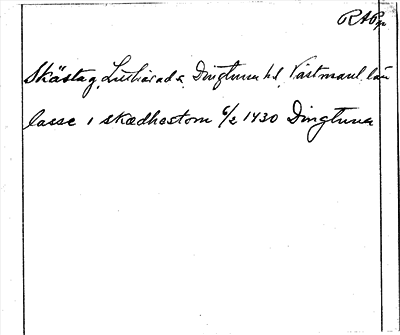 RAPp
Skästag, Lillhärads, Dingtuna hd, Västmanl. län
lasse i skædhestom 6/2 1430 Dingtuna